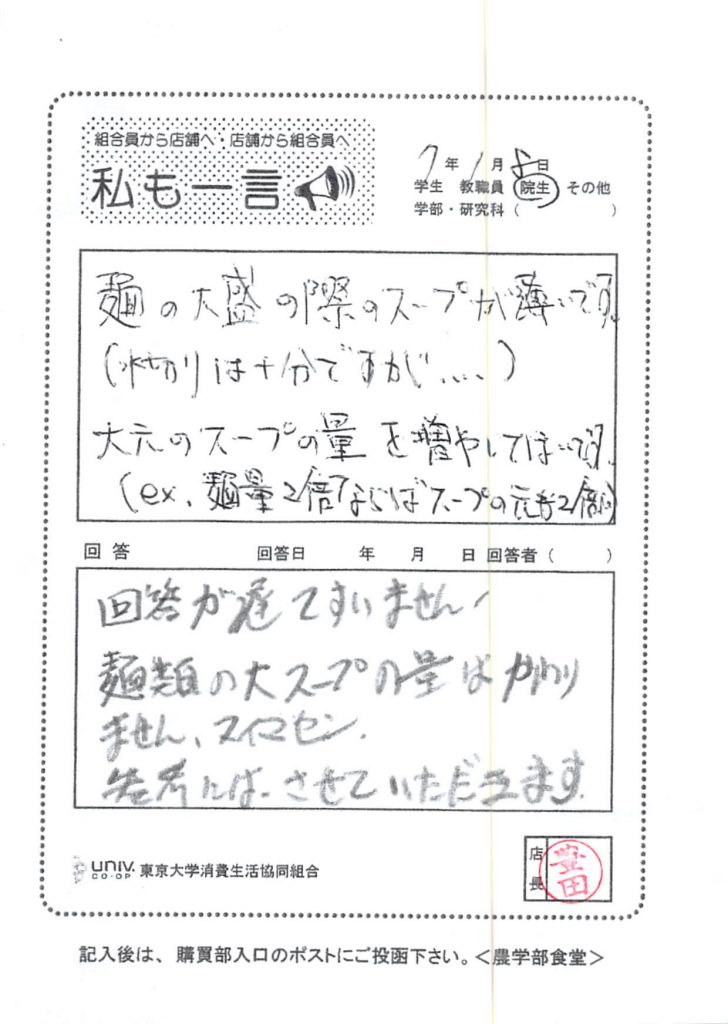 組合員から店舗へ・店舗から組合員へ
私も一言
7年1月 日
学生 教職員 院生 その他
学部・研究科( )
麺の大盛の際のスープが薄いです。
(水切りは十分ですが....)
大元のスープの量を増やしてほしいです。
(ex. 麺量2倍ならばスープの元も2倍)
回答 回答日 年 月 日 回答者( )
回答が遅てすいません!
麺類の大スープの量はかわり
ません、スイマセン.
参考にはさせていただきます.
UNIV.
CO-OP
東京大学消費生活協同組合
店長
豊田
記入後は、購買部入口のポストにご投函下さい。<農学部食堂>